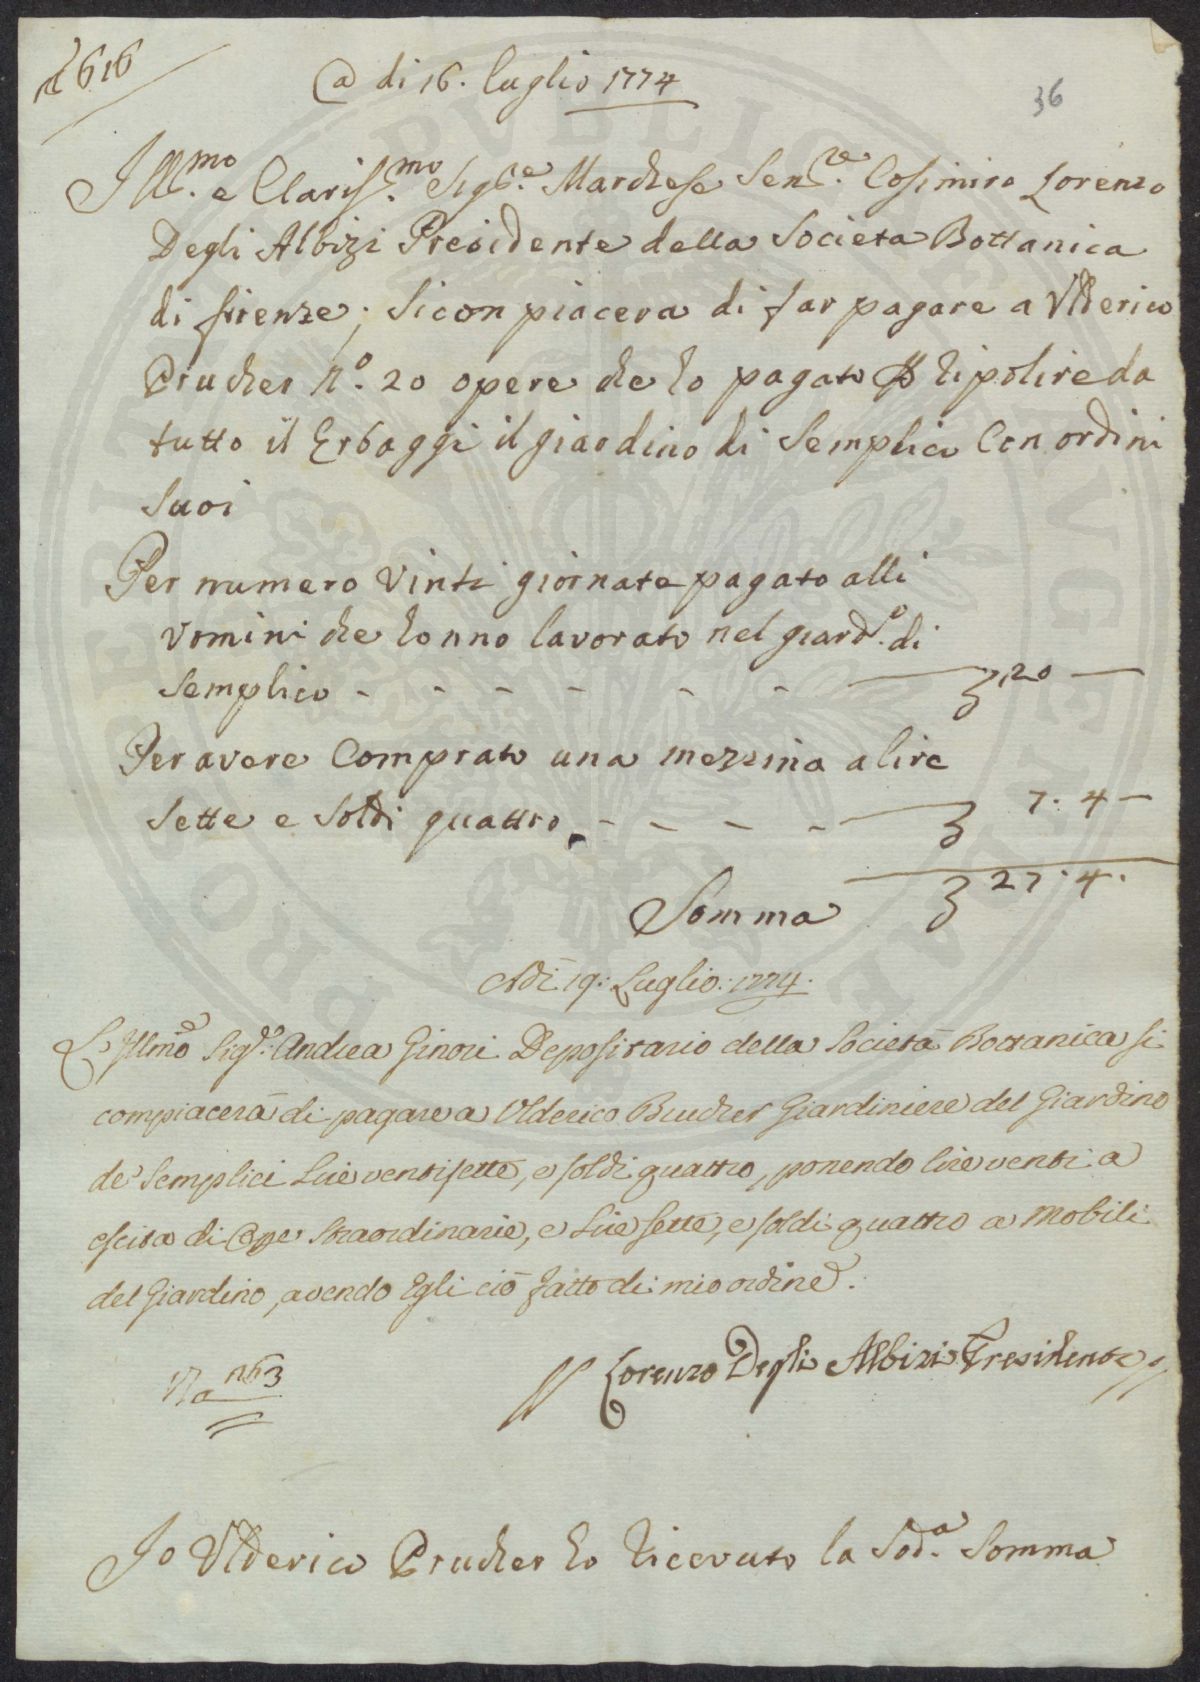 1616
@ di 16. luglio 1774
36
Ill.mo e Clariss.mo Sig.e Marchese Sen.e Cosimiro Lorenzo
Degli Albizi Presidente della Societa Bottanica
di firenze; Si conpiacera di far pagare a Ulderico
Prucher n.o 20 opere che ho pagato p ripolire da
tutto il Erbaggi il giardino di Semplici Con ordini
suoi
Per numero vinti giornate pagato alli
uomini che honno lavorato nel giard.o di
Semplici - - - - - - 20 —
Per avere Comprato una mezzina a lire
Sette e Soldi quattro - - - - 7. 4 —
Somma 27. 4.
Adi 19: Luglio: 1774.
L'Illmo Sig.r Andrea Ginori Depositario della Società Bottanica si
compiacerà di pagare a Ulderico Brucher Giardiniere del Giardino
de' Semplici Lire ventisette, e soldi quattro, ponendo lire venti a
escita di Opre Straordinarie, e Lire sette, e soldi quattro a Mobili
del Giardino, avendo Egli ciò fatto di mio ordine.
N.o 163
Lorenzo Degli Albizi Presidente
Io Ulderico Prucher ho Ricevuto la Sod.a Somma
PVBLICAE AVGENDAE PROSPERITATI